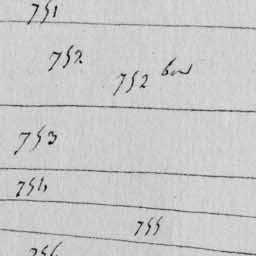 751
752
752 bis
753
754
755
756